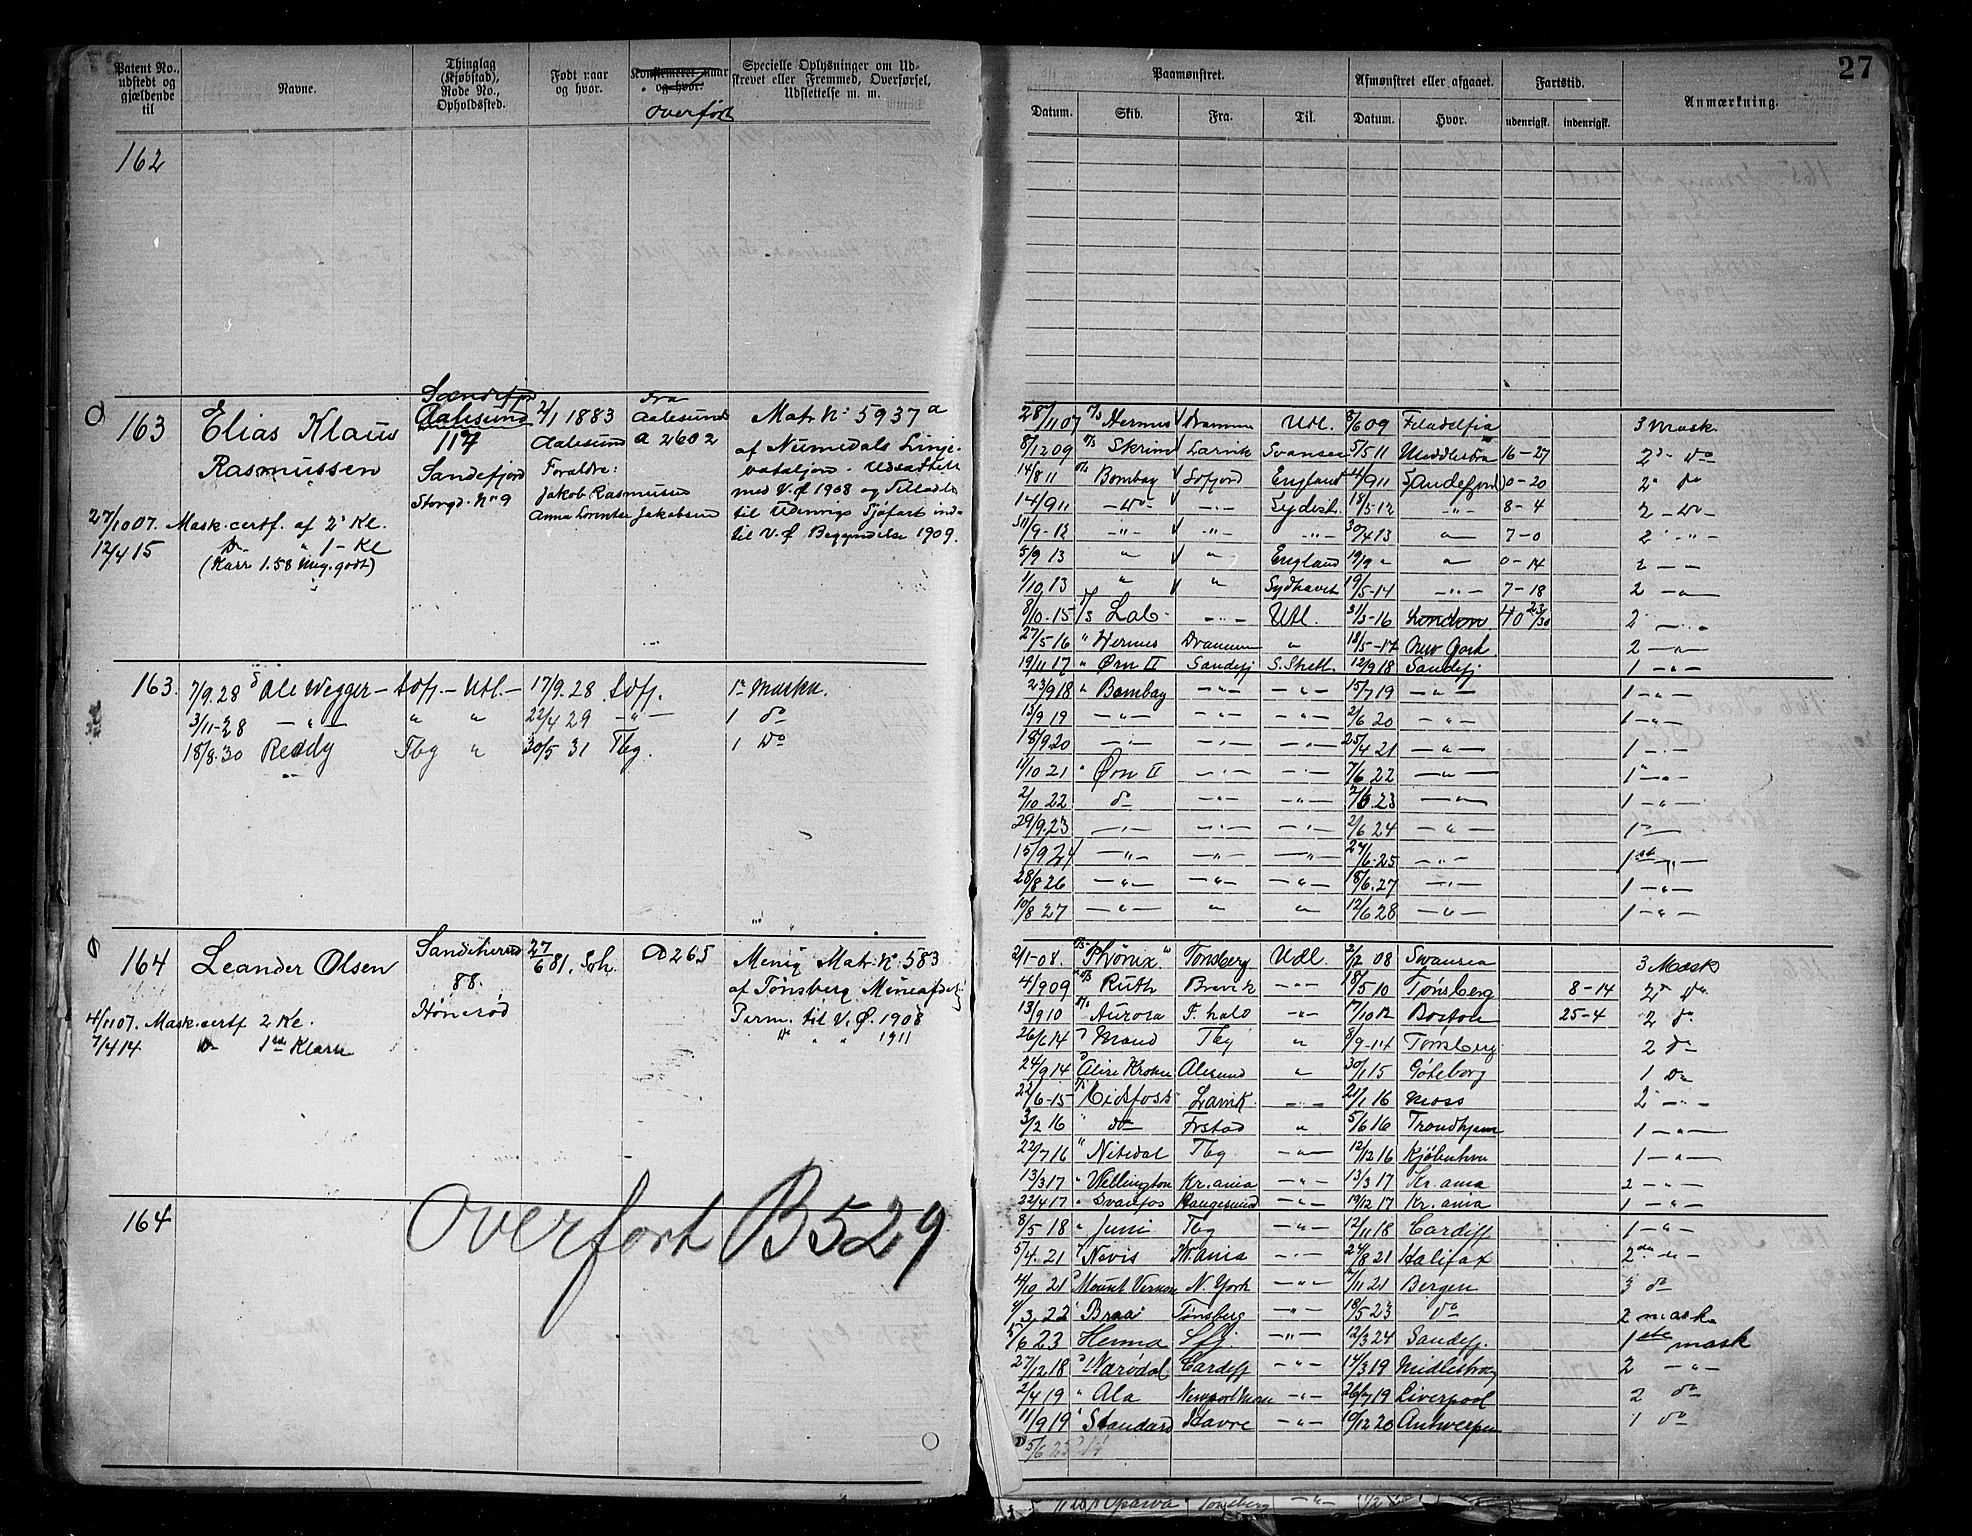 27
Patent No., udstedt og gjældende til
Navne.
Thinglag (Kjøbstad), Rode No., Opholdssted.
Født naar og hvor.
Konfirmeret naar og hvor.
overført
Specielle Oplysninger om Udskrevet eller Fremmed, Overførsel, Udslettelse m. m.
Paamønstret.
Afmønstret eller afgaaet.
Fartstid.
Anmærkning.
Datum. Skib. Fra. Til. Datum. Hvor. udenrigsk. indenrigsk.
162
163 Elias Klaus
Rasmussen
27/10 07. Mask.certf. af 2' Kl.
12/4 15 Do " 1 - Kl
(Kar 1.58 Meg.godt)
Sandefjord
Aalesund
117
Sandefjord
Storgd. No 9
2/1 1883
Aalesund
Foraldre:
Jakob Rasmusen
Anna Lorentse Jakobsen
Fra
Aalesund
a 2602
Matr No 5937 a
af Numedals Linje-
bataljon. Udsadt
med V.Ø 1908 og Tilladelse
til Udenrigs Sjøfart ind-
til V.Ø Begyndelse 1909.
28/11 07 Hermes Drammen Utl. 8/6 09 Filadelfia 3 Mask
8/12 09 Skrim Larvik Svansea 5/5 11 Middlesbro 16-27 2 Do
14/8 11 Bombay Sdfjord England 4/9 11 Sandefjord 0-20 2 do
14/9 11 - Do - - " - Sydish. 18/5-12 - " - 8-4 2 - Do -
11/9-12 - " - - " - - " - 30/4 13 " 7-0 2 - " -
5/9 13 " " England 19/9 " " 0-14 2 - " -
1/10 13 " " Sydhavet 19/5-14 - " - 7-18 2 - " -
8/10-15 T/s Lab - " - Utl. 31/3-16 London 40 23/30 2 - " -
27/5 16 " Hermes Drammen " 18/5-17 New York 2 - " -
19/11 17 " Ørn II Sandefj S. Shetl. 12/9 18 Sandefj 1 - " -
163. 7/9.28 Ole Wegger - Sdfj. - Utl. - 17/9.28. Sdfj. 1ste Maskn.
3/11-28 - " - " " 22/4 29 - " - 1 do
18/8.30 Ready Tbg " 30/5 31 Tbg. 1 Do
23/9 18 " Bombay - " - - " - 15/7 19 - " - 1 - " -
13/9 19 - " - - " - - " - 2/6 20 - " - 1 - " -
18/9 20 - " - - " - - " - 25/4 21 - " - 1 - " -
11/10 21 " Ørn II - " - - " - 7/6 22 - " - 1 - " -
2/10 22 do - " - - " - 2/6 23 - " - 1 - " -
29/9.23 - " - - " - - " - 2/6 24 - " - 1 - " -
15/9 24 - " - - " - - " - 27/6-25 - " - 1ste - " -
28/8 26 - " - - " - - " - 18/6.27 - " - 1 - " -
10/8 27 - " - " " 12/6 28 - " - 1 - " -
164 Leander Olsen
4/11 07. Mask.certf 2 Kl.
7/4 14 Do 1ste Klasse
Sandeherred
88.
Hønerød
27/6 81. Soh.
A 265
Menig Matr. No 583
af Tønsberg Mineafdeling
Perm. til V.Ø. 1908
Do " " 1911
2/1-08. Phønix Tønsberg Udl. 2/2 08 Swansea 3 Mask
4/9 09 Ruth Brevik - " - 18/5 10 Tønsberg 8-14 2 Do
13/9 10 Aurora F. hald - " - 17/10 12 Boston 25-4 2 do
26/6 14 Maud Tbg " 8/9-14 Tønsberg 2 do
24/9 14 Alise Krohn Alesund " 30/1 15 Gøteborg 1 Do
22/6-15 Eidsfoss Larvik - " - 21/1 16 Moss 2 - " -
3/2 16 " do Frstad " 5/6 16 Trondhjem 1 - " -
22/7 16 " Nitedal Tbg - " - 12/12 16 Kjøbenhvn 1 - " -
13/3 17 " Wellington Kr.ania - " - 13/3 17 Kr.ania 2 - " -
22/4 17 " Svanfos Haugesund - " - 19/12 17 Kr.ania 1 - " -
164
Overført B 529
8/5 18 " Juni Tbg - " - 12/11 18 Cardiff 1 - " -
5/4. 21 Nevis Kr.ania - " - 27/8 21 Halifax 2den " -
4/10 21 Mount Vernon N. York - " - 7/11 21 Bergen 3 do
4/3 22 Braai Tønsberg - " - 18/5 23 Do 2 maske
15/6 23 Herma Sfj. - " - 12/3 24 Sandefj. 1ste mask
27/12 18 Nærødal Cardiff - " - 14/3 19 Midlesbroug 2 - " -
2/4 19 " Ala Newport Mon - " - 26/7 19 Liverpool 2 do
11/9 19 " Standard Havre - " - 19/12 20 Antwerpen 1 do
5/6 23
Tønsberg - " -